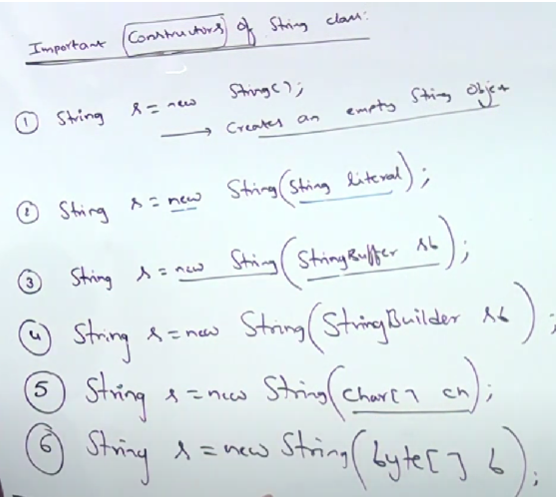 Important Constructors of String class:
① String s = new String();
→ Creates an empty String Object
② String s = new String(String literal);
③ String s = new String(StringBuffer sb);
④ String s = new String(StringBuilder sb);
⑤ String s = new String(char[] ch);
⑥ String s = new String(byte[] b);